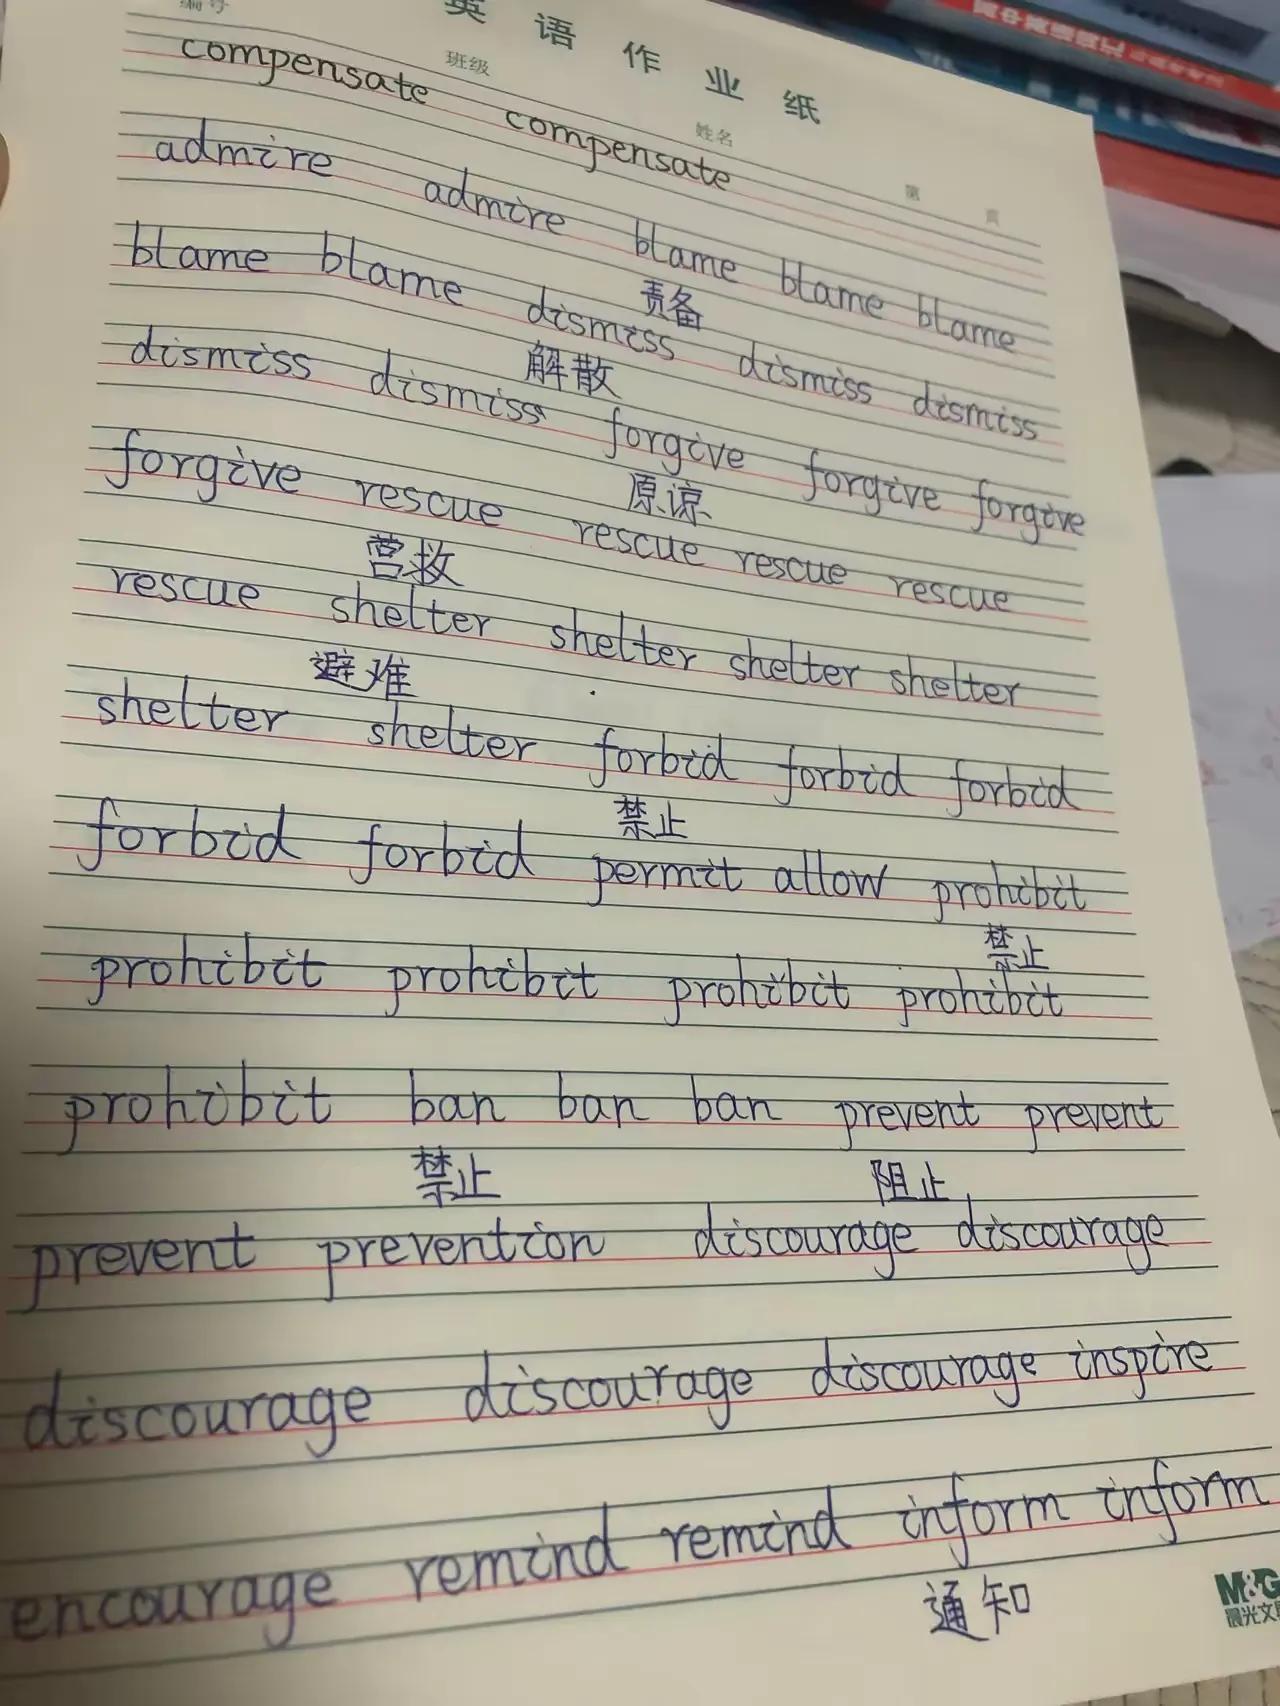 编号
英语作业纸
班级 姓名 第 页
compensate compensate
admire admire blame blame blame
blame blame dismiss dismiss dismiss
责备
dismiss dismiss forgive forgive forgive
解散
forgive rescue rescue rescue rescue
原谅
营救
rescue shelter shelter shelter shelter
避难
shelter shelter forbid forbid forbid
禁止
forbid forbid permit allow prohibit
禁止
prohibit prohibit prohibit prohibit
prohibit ban ban ban prevent prevent
禁止 阻止
prevent prevention discourage discourage
discourage discourage discourage inspire
encourage remind remind inform inform
通知
M&G
晨光文